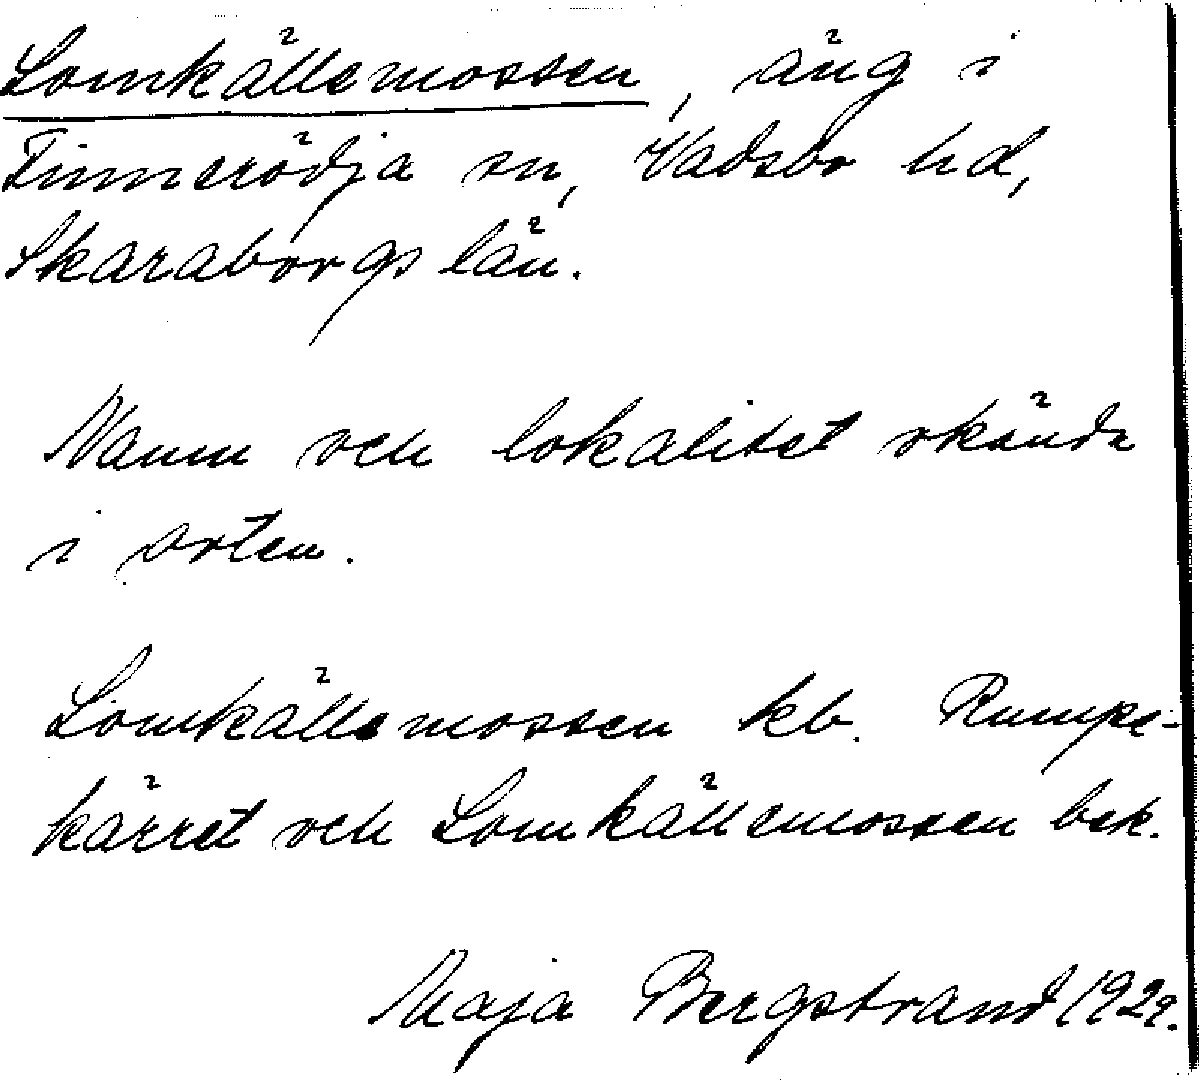 Lomkällemossen, äng i
Finnerödja sn, Vadsbo hd,
Skaraborgs län.
Namn och lokalitet okända
i orten.
Lomkällemossen kb. Rumpe-
kärret och Lomkällemossen bek.
Maja Bergstrand 1929.